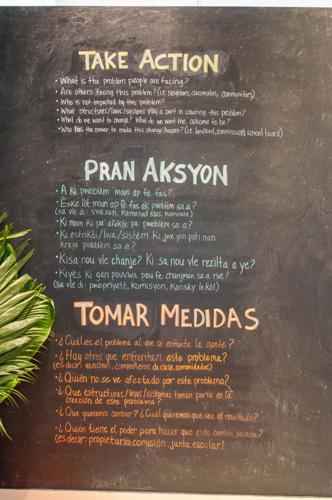 TAKE ACTION
• What is the problem people are facing?
• Are others facing this problem? (i.e neighbors, classmates, communities)
• Who is not impacted by this problem?
• What structures/laws/systems play a part in creating this problem?
• What do we want to change? What do we want the outcome to be?
• Who has the power to make this change happen? (i.e. landlord, commission, school board)
PRAN AKSYON
• A ki pwoblèm moun ap fè fas?
• Eske lòt moun ap fè fas ak pwoblèm sa a?
(sa vle di: vwazen, kamarad klas, kominote)
• Ki moun ki pa afekte pa pwoblèm sa a?
• Ki estrikti/lwa/sistèm ki jwe yon pati nan
kreye pwoblèm sa a?
• Kisa nou vle chanje? Ki sa nou vle rezilta a ye?
• Kiyès ki gen pouvwa pou fè chanjman sa a rive?
(sa vle di: pwopriyetè, komisyon, lekòl)
TOMAR MEDIDAS
• ¿Cuál es el problema al que se enfrenta la gente?
• ¿Hay otros que enfrentan este problema?
(es decir: vecinos, compañeros de clase, comunidades)
• ¿Quién no se ve afectado por este problema?
• ¿Que estructuras/leyes/sistemas toman parte en la
creación de este problema?
• ¿Que queremos cambiar? ¿Cuál queremos que sea el resultado?
• ¿Quién tiene el poder para hacer que este cambio suceda?
(es decir: propietario, comisión, junta escolar)